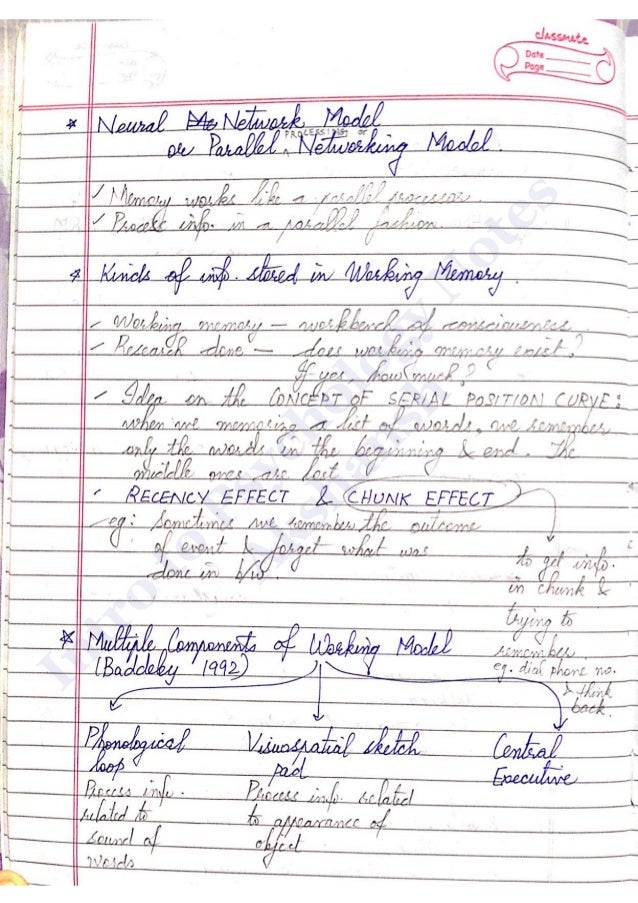 classmate
Date
Page
* Neural Network Model
or Parallel PROCESSING or Networking Model.
✓ Memory works like a parallel processor.
✓ Process info. in a parallel fashion.
* Kinds of info. stored in Working Memory.
- Working memory – workbench of consciousness.
- Research done – does working memory exist?
If yes, how much?
- Idea on the CONCEPT OF SERIAL POSITION CURVE:
when we memorise a list of words, we remember
only the words in the beginning & end. The
middle ones are lost.
- RECENCY EFFECT & CHUNK EFFECT
- eg: Sometimes we remember the outcome
of event & forget what was
done in b/w.
to get info.
in chunk &
trying to
remember
eg. dial phone no.
> think
back.
* Multiple Components of Working Model
(Baddeley 1992)
Phonological loop
Process info.
related to
sound of
words
Visuospatial sketch
pad
Process info. related
to appearance of
object
Central
Executive
Intro to Psychology Notes